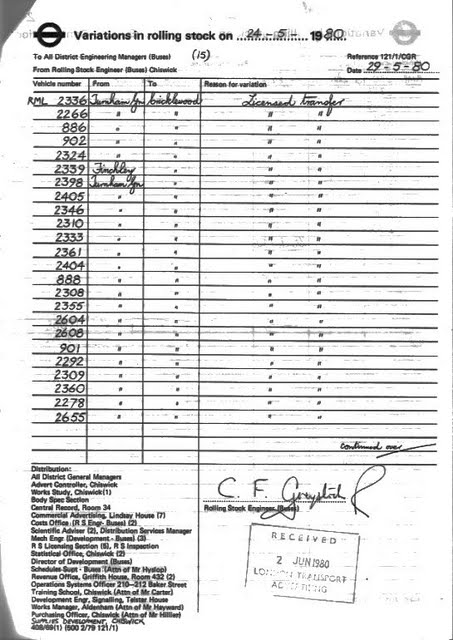 Variations in rolling stock on 24-5- 1980
To All District Engineering Managers (Buses) (15) Reference 121/1/CGR
From Rolling Stock Engineer (Buses) Chiswick Date 29-5-80
Vehicle number From To Reason for variation
RML 2336 Turnham Gn Cricklewood Licensed transfer
2266 " " " "
886 " " " "
902 " " " "
2324 " " " "
2339 Finchley " " "
2398 Turnham Gn " " "
2405 " " " "
2346 " " " "
2310 " " " "
2333 " " " "
2361 " " " "
2404 " " " "
888 " " " "
2308 " " " "
2355 " " " "
2604 " " " "
2608 " " " "
901 " " " "
2292 " " " "
2309 " " " "
2360 " " " "
2278 " " " "
2655 " " " "
continued over
Distribution:
All District General Managers
Advert Controller, Chiswick
Works Study, Chiswick (1)
Body Spec Section
Central Record, Room 34
Commercial Advertising, Lindsay House (7)
Costs Office (R S Engr- Buses) (2)
Scientific Adviser (2), Distribution Services Manager
Mech Engr (Development - Buses) (3)
R S Licensing Section (5), R S Inspection
Statistical Office, Chiswick (2)
Director of Development (Buses)
Schedules Supt - Buses (Attn of Mr Hyslop)
Revenue Office, Griffith House, Room 432 (2)
Operations Systems Officer 210-212 Baker Street
Training School, Chiswick (Attn of Mr Carter)
Development Engr, Signalling, Telstar House
Works Manager, Aldenham (Attn of Mr Hayward)
Purchasing Officer, Chiswick (Attn of Mr Hillier)
SUPPLIES DEVELOPMENT, CHISWICK
408/69(1) (500 2/79 121/1)
C. F.
Rolling Stock Engineer (Buses)
RECEIVED
2 JUN 1980
LONDON TRANSPORT
ADVERTISING